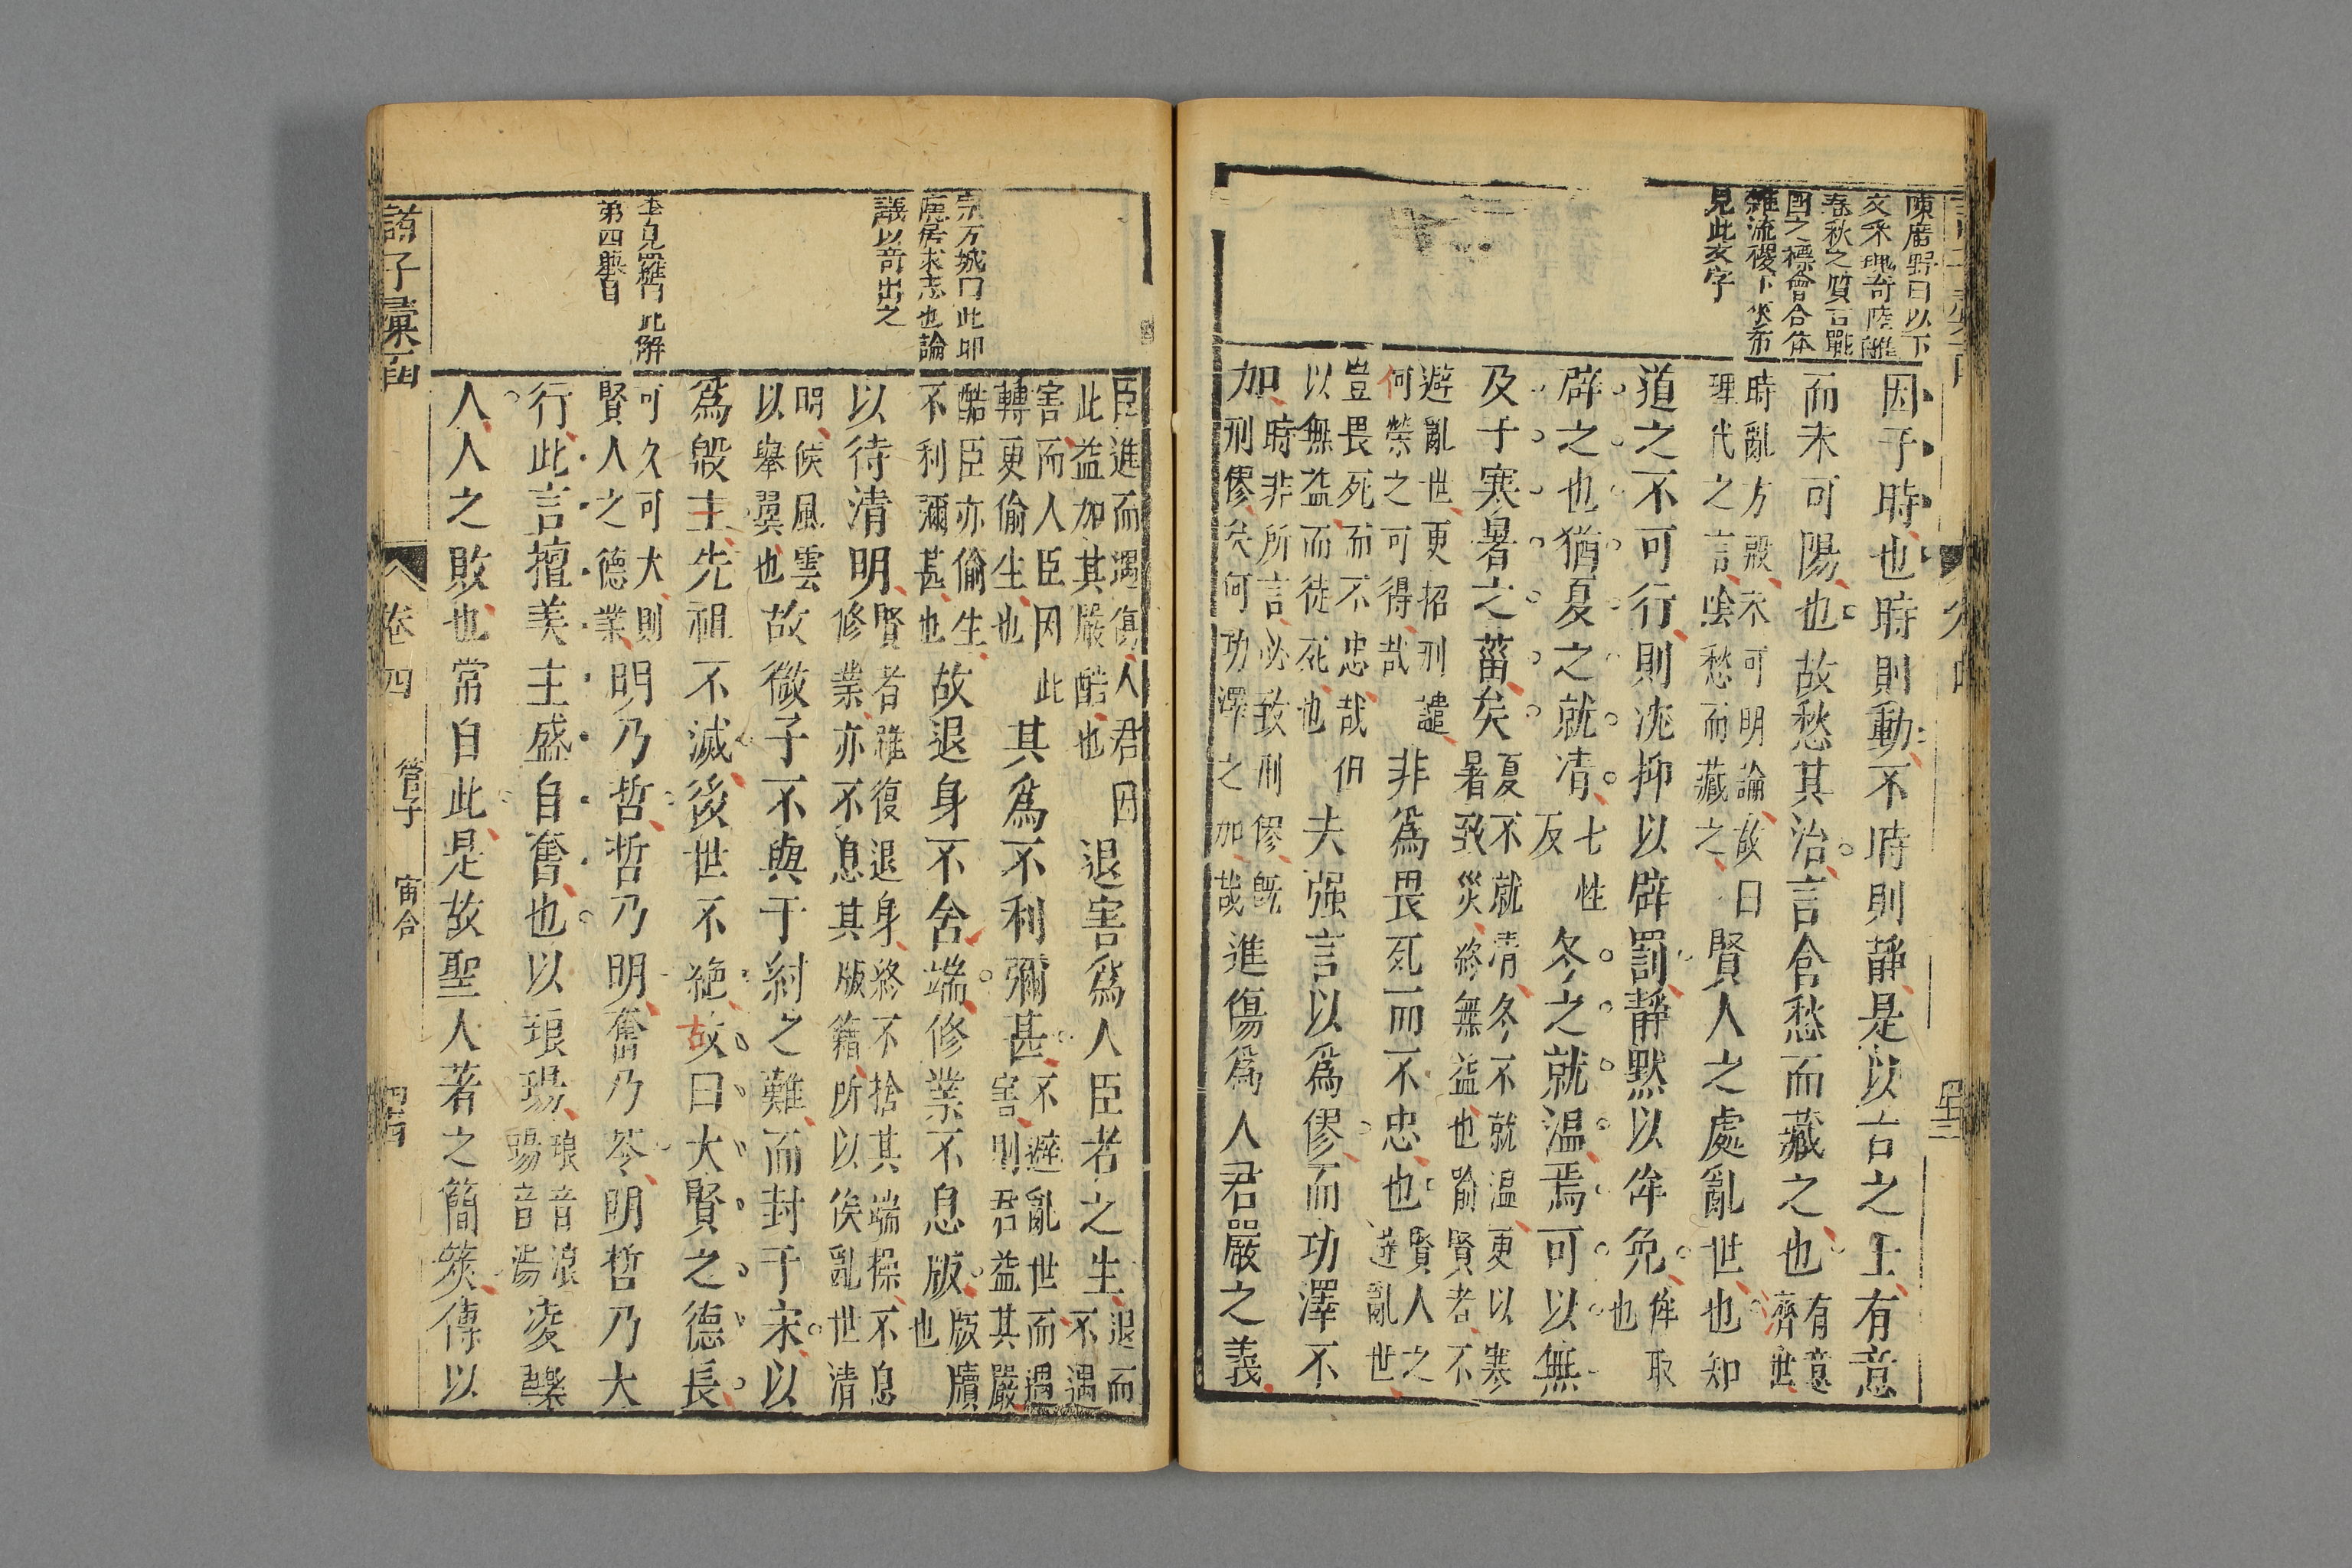 因于時也時則動不時則靜是以古之士有意
而未可陽也故愁其治言含愁而藏之也有意濟世
時亂方殷未可明論故曰
理代之言陰愁而藏之賢人之處亂世也知
道之不可行則沈抑以辟罰靜默以侔免侔取也
辟之也猶夏之就凊七性反冬之就温焉可以無
及于寒暑之菑矣夏不就清冬不就温更以寒
暑致災終無益也踰賢者不
避亂世更招刑譴
何榮之可得哉非爲畏死而不忠也賢人之遊亂世
豈畏死而不忠哉但
以無益而徒死也夫强言以爲僇而功澤不
加時非所言必致刑僇既
刑僇矣何功澤之加哉進傷爲人君嚴之義
陳廣野曰以下
文采瑰奇陸離
春秋之質古戰
國之標會合体
雜流稷下
見此文字
臣進而遇傷人君因
此益加其嚴酷也退害爲人臣者之生退而不遇
害而人臣因此
轉更偷生也其爲不利彌甚不避亂世而遇
害則君益其嚴
酷臣亦偷生
不利彌甚也故退身不舍端修業不息版版牘也
以待清明賢者雖復退身終不捨其端操不息
修業亦不息其版籍所以俟亂世清
明候風雲
以舉翼也故微子不與于紂之難而封于宋以
爲殷主先祖不滅後世不絶故曰大賢之德長
可久可大則
賢人之德業明乃哲哲乃明奮乃苓明哲乃大
行此言擅美主盛自奮也以琅瑒琅音浪瑒音湯凌轢
人人之敗也常自此是故聖人著之簡筴傳以
宗方城曰此卽
隱居求志也論
議以奇出之
李見羅曰此解
第四舉目
諸子彙函
卷四
管子
宙合